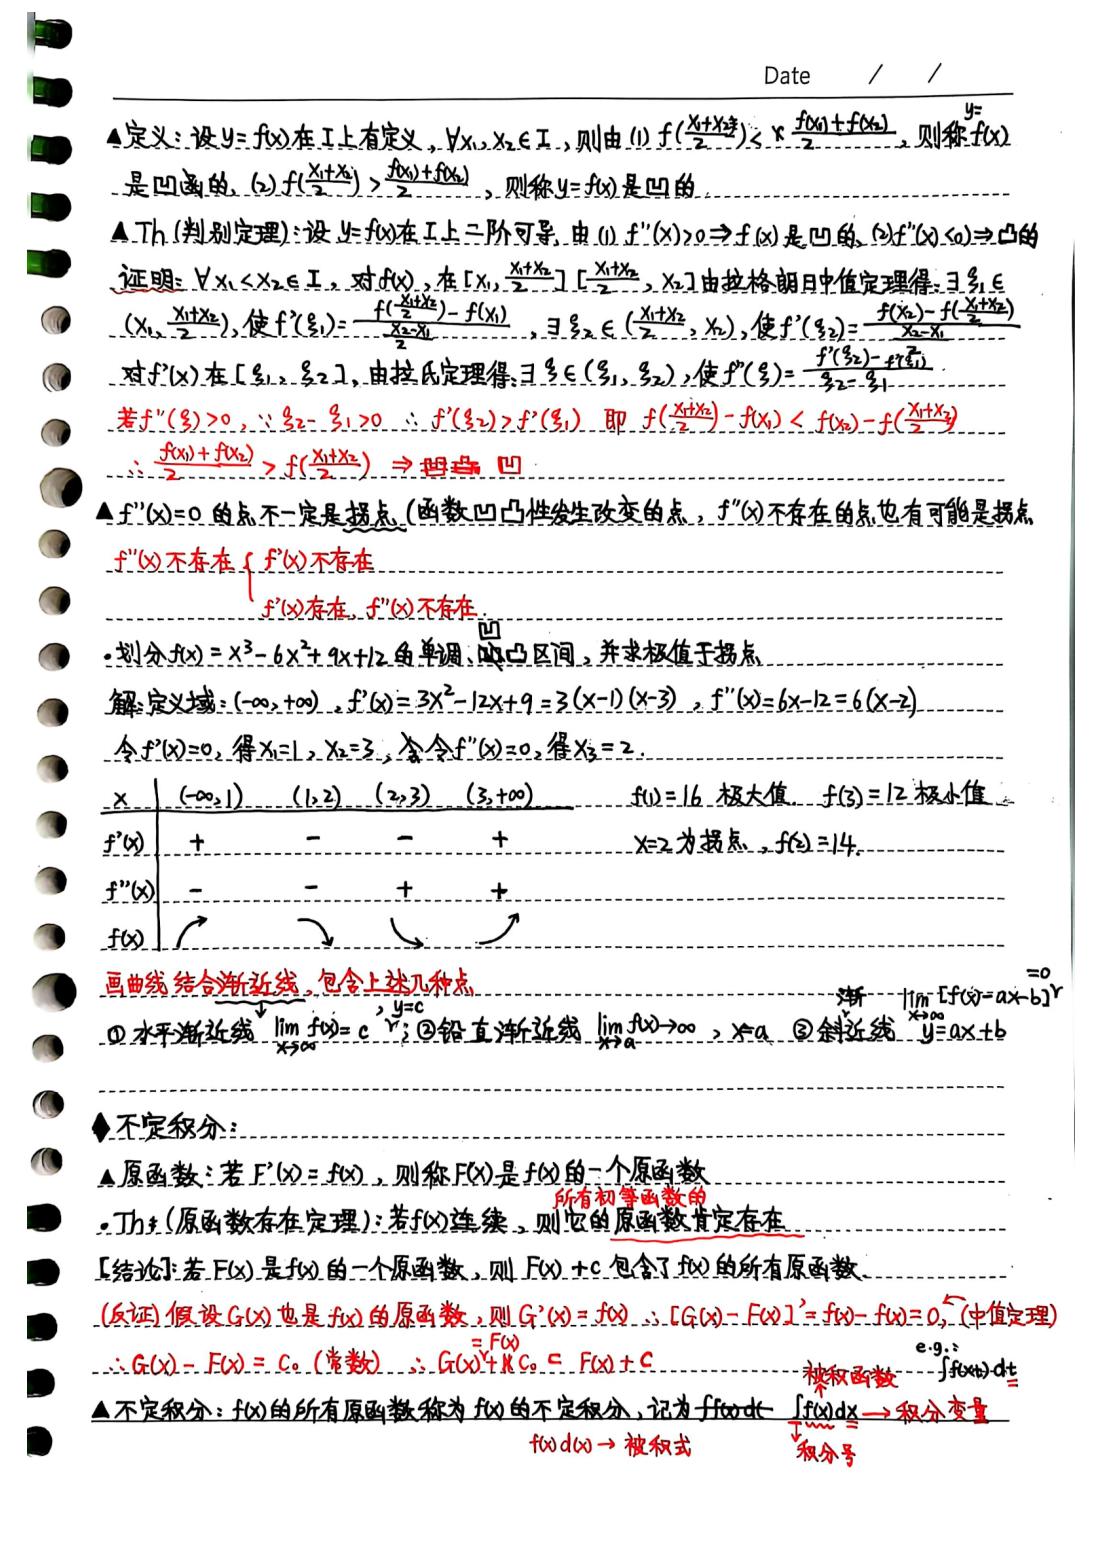 Date / /
▲定义：设y=f(x)在I上有定义，∀x₁,x₂∈I，则由(1) f((x₁+x₂)/2) < (f(x₁)+f(x₂))/2，则称y=f(x)
是凹函的，(2) f((x₁+x₂)/2) > (f(x₁)+f(x₂))/2，则称y=f(x)是凹的．
▲Th(判别定理)：设y=f(x)在I上二阶可导，由(1) f''(x)>0⇒f(x)是凹的，(2)f''(x)<0)⇒凸的
证明：∀x₁<x₂∈I，对f(x)，在[x₁,(x₁+x₂)/2][(x₁+x₂)/2,x₂]由拉格朗日中值定理得：∃ξ₁∈
(x₁,(x₁+x₂)/2)，使f'(ξ₁)=(f((x₁+x₂)/2)-f(x₁))/((x₂-x₁)/2)，∃ξ₂∈((x₁+x₂)/2,x₂)，使f'(ξ₂)=(f(x₂)-f((x₁+x₂)/2))/((x₂-x₁)/2)
对f'(x)在[ξ₁,ξ₂]，由拉氏定理得：∃ξ∈(ξ₁,ξ₂)，使f''(ξ)=(f'(ξ₂)-f'(ξ₁))/(ξ₂-ξ₁)
若f''(ξ)>0，∵ξ₂-ξ₁>0 ∴f'(ξ₂)>f'(ξ₁) 即 f((x₁+x₂)/2)-f(x₁)<f(x₂)-f((x₁+x₂)/2)
∴(f(x₁)+f(x₂))/2>f((x₁+x₂)/2) ⇒ 凹
▲f''(x)=0的点不一定是拐点(函数凹凸性发生改变的点，f''(x)不存在的点也有可能是拐点
f''(x)不存在{ f'(x)不存在
f'(x)存在，f''(x)不存在．
·划分f(x)=x³-6x²+9x+12的单调、凹凸区间，并求极值于拐点
解：定义域：(-∞,+∞)，f'(x)=3x²-12x+9=3(x-1)(x-3)，f''(x)=6x-12=6(x-2)
令f'(x)=0，得x₁=1，x₂=3，令f''(x)=0，得x₃=2．
x (-∞,1) (1,2) (2,3) (3,+∞) f(1)=16 极大值．f(3)=12极小值
f'(x) + - - + x=2为拐点，f(2)=14．
f''(x) - - + +
f(x)
画曲线结合渐近线，包含上述几种点
①水平渐近线 lim x→∞ f(x)=c，y=c；②铅直渐近线 lim x→a f(x)→∞，x=a ③斜渐近线 lim x→∞ [f(x)-ax-b]=0 y=ax+b
◆不定积分：
▲原函数：若F'(x)=f(x)，则称F(x)是f(x)的一个原函数
所有初等函数的
·Th(原函数存在定理)：若f(x)连续，则它的原函数肯定存在
[结论]：若F(x)是f(x)的一个原函数，则F(x)+c包含了f(x)的所有原函数．
(反证)假设G(x)也是f(x)的原函数，则G'(x)=f(x) ∴[G(x)-F(x)]'=f(x)-f(x)=0，←(中值定理)
∴G(x)-F(x)=C₀(常数) ∴G(x)=F(x)+C₀⊂F(x)+C
e.g.: ∫f(xt)·dt
被积函数
▲不定积分：f(x)的所有原函数称为f(x)的不定积分，记为∫f(x)dx→积分变量
f(x)d(x)→被积式 积分号